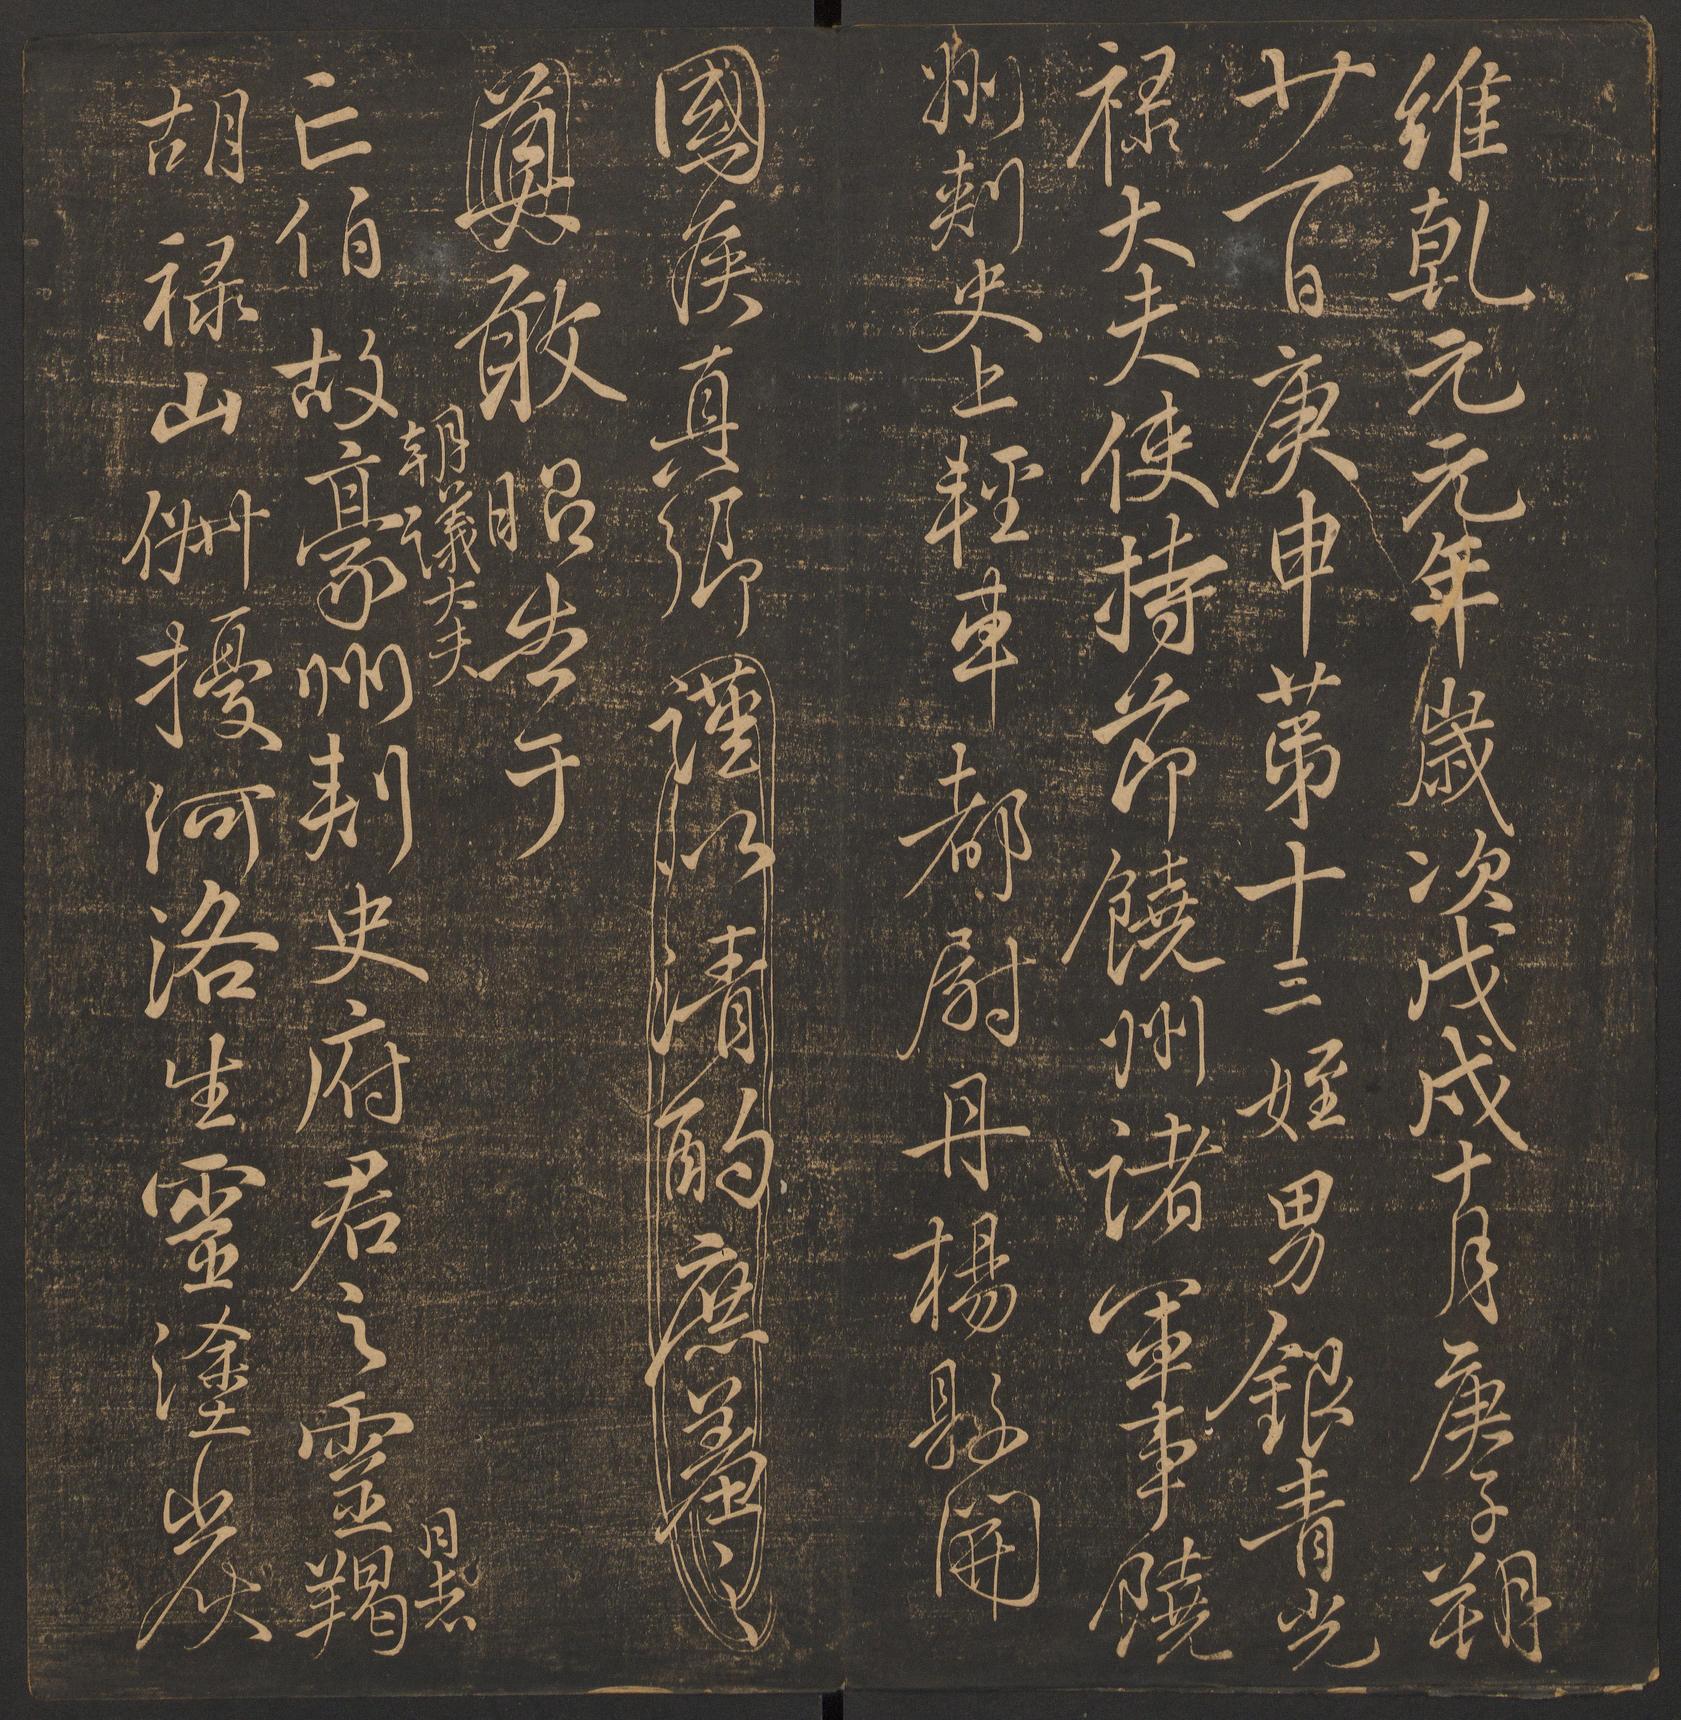 維乾元元年歲次戊戌十月庚子朔
廿一日庚申第十三姪男銀青光
禄大夫使持節饒州諸軍事饒
州刺史上輕車都尉丹楊縣開
國侯真卿謹以清酌庶羞之
奠敢昭告于
朝議大夫
日者
亡伯故豪州刺史府君之靈羯
胡禄山俶擾河洛生靈塗炭